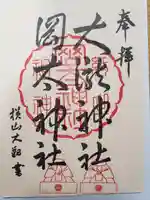 奉拝
大瀧神社
岡太神社
横山大観 書